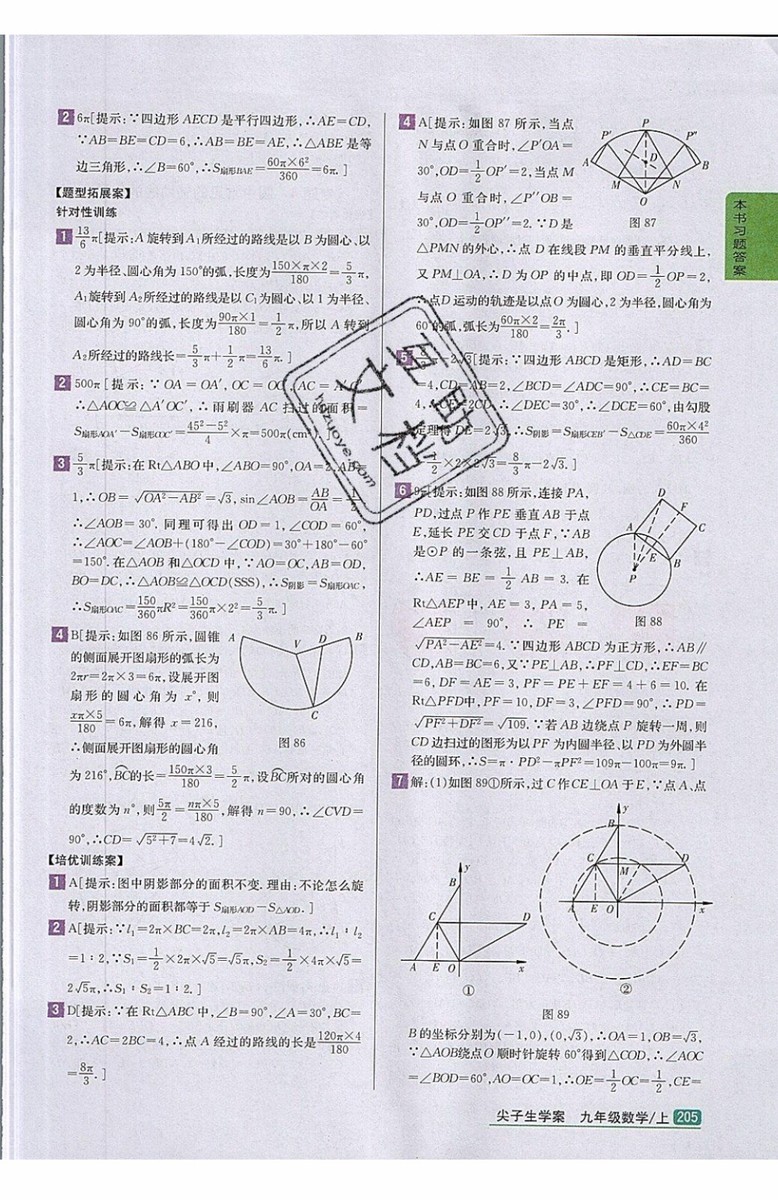 2 6π[提示:∵四边形 AECD 是平行四边形,∴AE=CD,
∵AB=BE=CD=6,∴AB=BE=AE,∴△ABE 是等
边三角形,∴∠B=60°,∴S扇形BAE=60π×6²/360=6π.]
【题型拓展案】
针对性训练
1 13/6π[提示:A 旋转到 A₁所经过的路线是以 B 为圆心、以
2 为半径、圆心角为 150°的弧,长度为150×π×2/180=5/3π,
A₁旋转到 A₂所经过的路线是以 C₁为圆心、以 1 为半径、
圆心角为 90°的弧,长度为90π×1/180=1/2π,所以 A 转到
A₂所经过的路线长=5/3π+1/2π=13/6π.]
2 500π[提示:∵OA=OA′,OC=OC′,AC=A′C′,
∴△AOC≌△A′OC′,∴雨刷器 AC 扫过的面积=
S扇形AOA′-S扇形COC′=45²-5²/4×π=500π(cm²).]
3 5/3π[提示:在 Rt△ABO 中,∠ABO=90°,OA=2,AB=
1,∴OB=√OA²-AB²=√3,sin∠AOB=AB/OA=1/2,
∴∠AOB=30°.同理可得出 OD=1,∠COD=60°,
∴∠AOC=∠AOB+(180°-∠COD)=30°+180°-60°
=150°.在△AOB 和△OCD 中,∵AO=OC,AB=OD,
BO=DC,∴△AOB≌△OCD(SSS),∴S阴影=S扇形OAC,
∴S扇形OAC=150/360πR²=150/360π×2²=5/3π.]
4 B[提示:如图 86 所示,圆锥
的侧面展开图扇形的弧长为
2πr=2π×3=6π,设展开图
扇形的圆心角为 x°,则
xπ×5/180=6π,解得 x=216,
∴侧面展开图扇形的圆心角
A V D B C
图 86
为 216°,BC的长=150π×3/180=5/2π,设BC所对的圆心角
的度数为 n°,则5π/2=nπ×5/180,解得 n=90,∴∠CVD=
90°,∴CD=√5²+7=4√2.]
【培优训练案】
1 A[提示:图中阴影部分的面积不变.理由:不论怎么旋
转,阴影部分的面积都等于 S扇形AOD-S△AOD.]
2 A[提示:∵l₁=2π×BC=2π,l₂=2π×AB=4π,∴l₁:l₂
=1:2,∵S₁=1/2×2π×√5=√5π,S₂=1/2×4π×√5=
2√5π,∴S₁:S₂=1:2.]
3 D[提示:∵在 Rt△ABC 中,∠B=90°,∠A=30°,BC=
2,∴AC=2BC=4,∴点 A 经过的路线的长是120π×4/180
=8π/3.]
4 A[提示:如图 87 所示,当点
N 与点 O 重合时,∠P′OA=
30°,OD=1/2OP′=2,当点 M
与点 O 重合时,∠P″OB=
30°,OD=1/2OP″=2.∵D 是
P P′ P″ A B D M N O
图 87
△PMN 的外心,∴点 D 在线段 PM 的垂直平分线上,
又 PM⊥OA,∴D 为 OP 的中点,即 OD=1/2OP=2,
∴点D 运动的轨迹是以点O 为圆心,2 为半径,圆心角为
60°的弧,弧长为60π×2/180=2π/3.]
5 π-2√3[提示:∵四边形 ABCD 是矩形,∴AD=BC
=4,CD=AB=2,∠BCD=∠ADC=90°,∴CE=BC=
4,∴CE=2CD,∴∠DEC=30°,∴∠DCE=60°,由勾股
定理得 DE=2√3,∴S阴影=S扇形CEB′-S△CDE=60π×4²/360
-1/2×2×2√3=8/3π-2√3.]
6 9π[提示:如图 88 所示,连接 PA,
PD,过点 P 作 PE 垂直 AB 于点
E,延长 PE 交 CD 于点 F,∵AB
是⊙P 的一条弦,且 PE⊥AB,
∴AE=BE=1/2AB=3.在
Rt△AEP 中,AE=3,PA=5,
∠AEP=90°,∴PE=
D F A C E B P
图 88
√PA²-AE²=4.∵四边形 ABCD 为正方形,∴AB∥
CD,AB=BC=6,又∵PE⊥AB,∴PF⊥CD,∴EF=BC
=6,DF=AE=3,PF=PE+EF=4+6=10.在
Rt△PFD中,PF=10,DF=3,∠PFD=90°,∴PD=
√PF²+DF²=√109.∵若 AB 边绕点 P 旋转一周,则
CD 边扫过的图形为以 PF 为内圆半径、以 PD 为外圆半
径的圆环,∴S=π·PD²-πPF²=109π-100π=9π.]
7 解:(1)如图 89①所示,过 C 作 CE⊥OA 于 E,∵点 A、点
y B C D A E O x
①
y B C M D A E O x
②
图 89
B 的坐标分别为(-1,0),(0,√3),∴OA=1,OB=√3,
∵△AOB绕点 O 顺时针旋转 60°得到△COD,∴∠AOC
=∠BOD=60°,AO=OC=1,∴OE=1/2OC=1/2,CE=
本书习题答案
hezuoye.com
尖子生学案 九年级数学/上 205